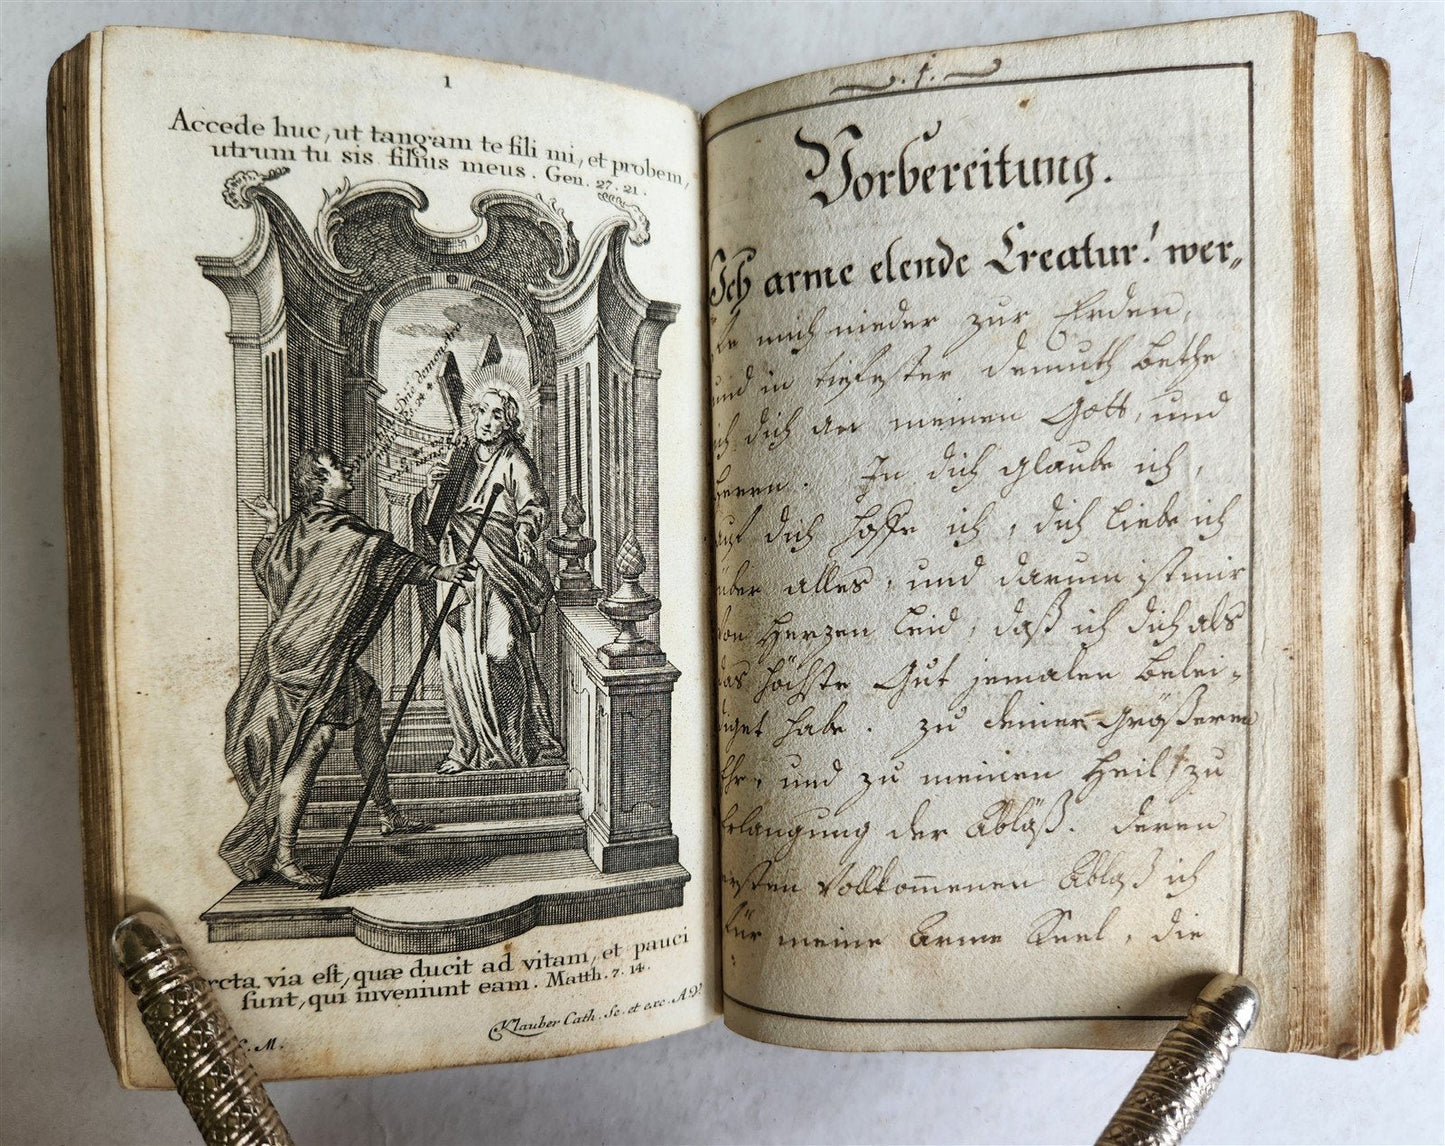 1
Accede huc, ut tangam te fili mi, et probem,
utrum tu sis filius meus. Gen. 27. 21.
rcta via est, quæ ducit ad vitam, et pauci
sunt, qui inveniunt eam. Matth. 7. 14.
Klauber Cath. Sc. et exc. A.V.
C. M.
. 1 .
Vorbereitung.
Ich arme elende Creatur! wer„
fe mich nieder zur Erden,
und in tiefester demuth bethe
ich dich an meinen Gott, und
Herrn. In dich glaube ich,
auf dich hoffe ich, dich liebe ich
über alles, und darum ist mir
von Herzen leid, daß ich dich als
das höchste Gut jemalen belei-
diget habe. zu deiner größeren
Ehr, und zu meinen Heil, zu
erlangung der Abläß. deren
ersten Vollkom̄enen Ablaß ich
für meine Arme Seel, die